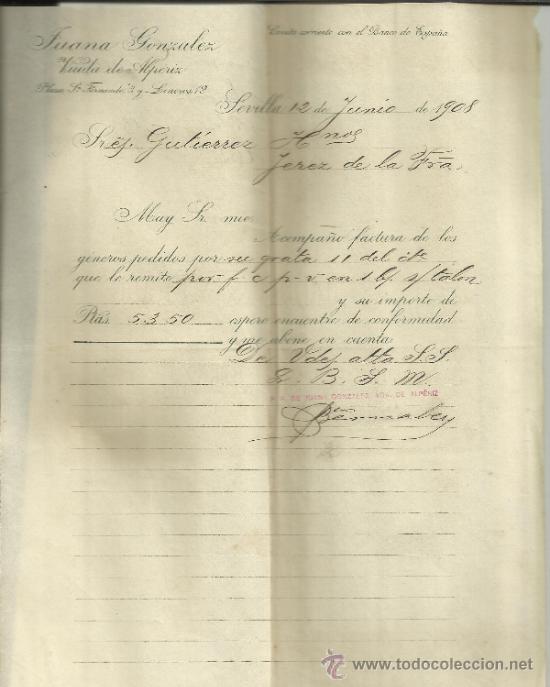 Juana Gonzalez
Viuda de Alpériz
Plaza Sn. Fernando 3 y Lineros 19
Cuenta corriente con el Banco de España
Sevilla 12 de Junio de 1908
Sres. Gutierrez Hnos
Jerez de la Fra.
Muy Sr. mio
Acompaño factura de los
géneros pedidos por su grata 11 del cte
que le remito por f. c. p. v. en 1 b/ s/talon
y su importe de
Ptas. 53.50 espero encuentre de conformidad
y me abone en cuenta
De Vdes. atta S. S.
Q. B. S. M.
P. P. DE JUANA GONZALEZ, VDA. DE ALPÉRIZ
www.todocoleccion.net